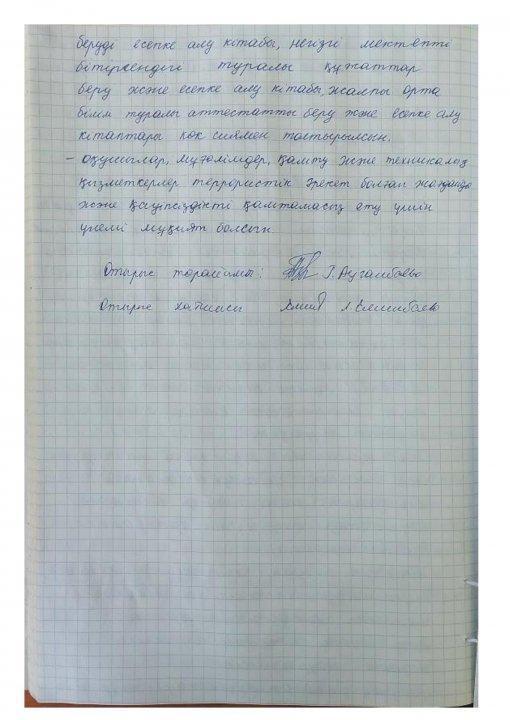 беруді есепке алу кітабы, негізгі мектепті
бітіргендігі туралы құжаттар
беру және есепке алу кітабы, жалпы орта
білім туралы аттестатты беру және есепке алу
кітаптары көк сиямен толтырылсын.
- оқушылар, мұғалімдер, қамту және техникалық
қызметкерлер террористік әрекет болған жағдайда
және қауіпсіздікті қамтамасыз ету үшін
үнемі мұқият болсын
Отырыс төрайымы: Г.
Отырыс хатшысы